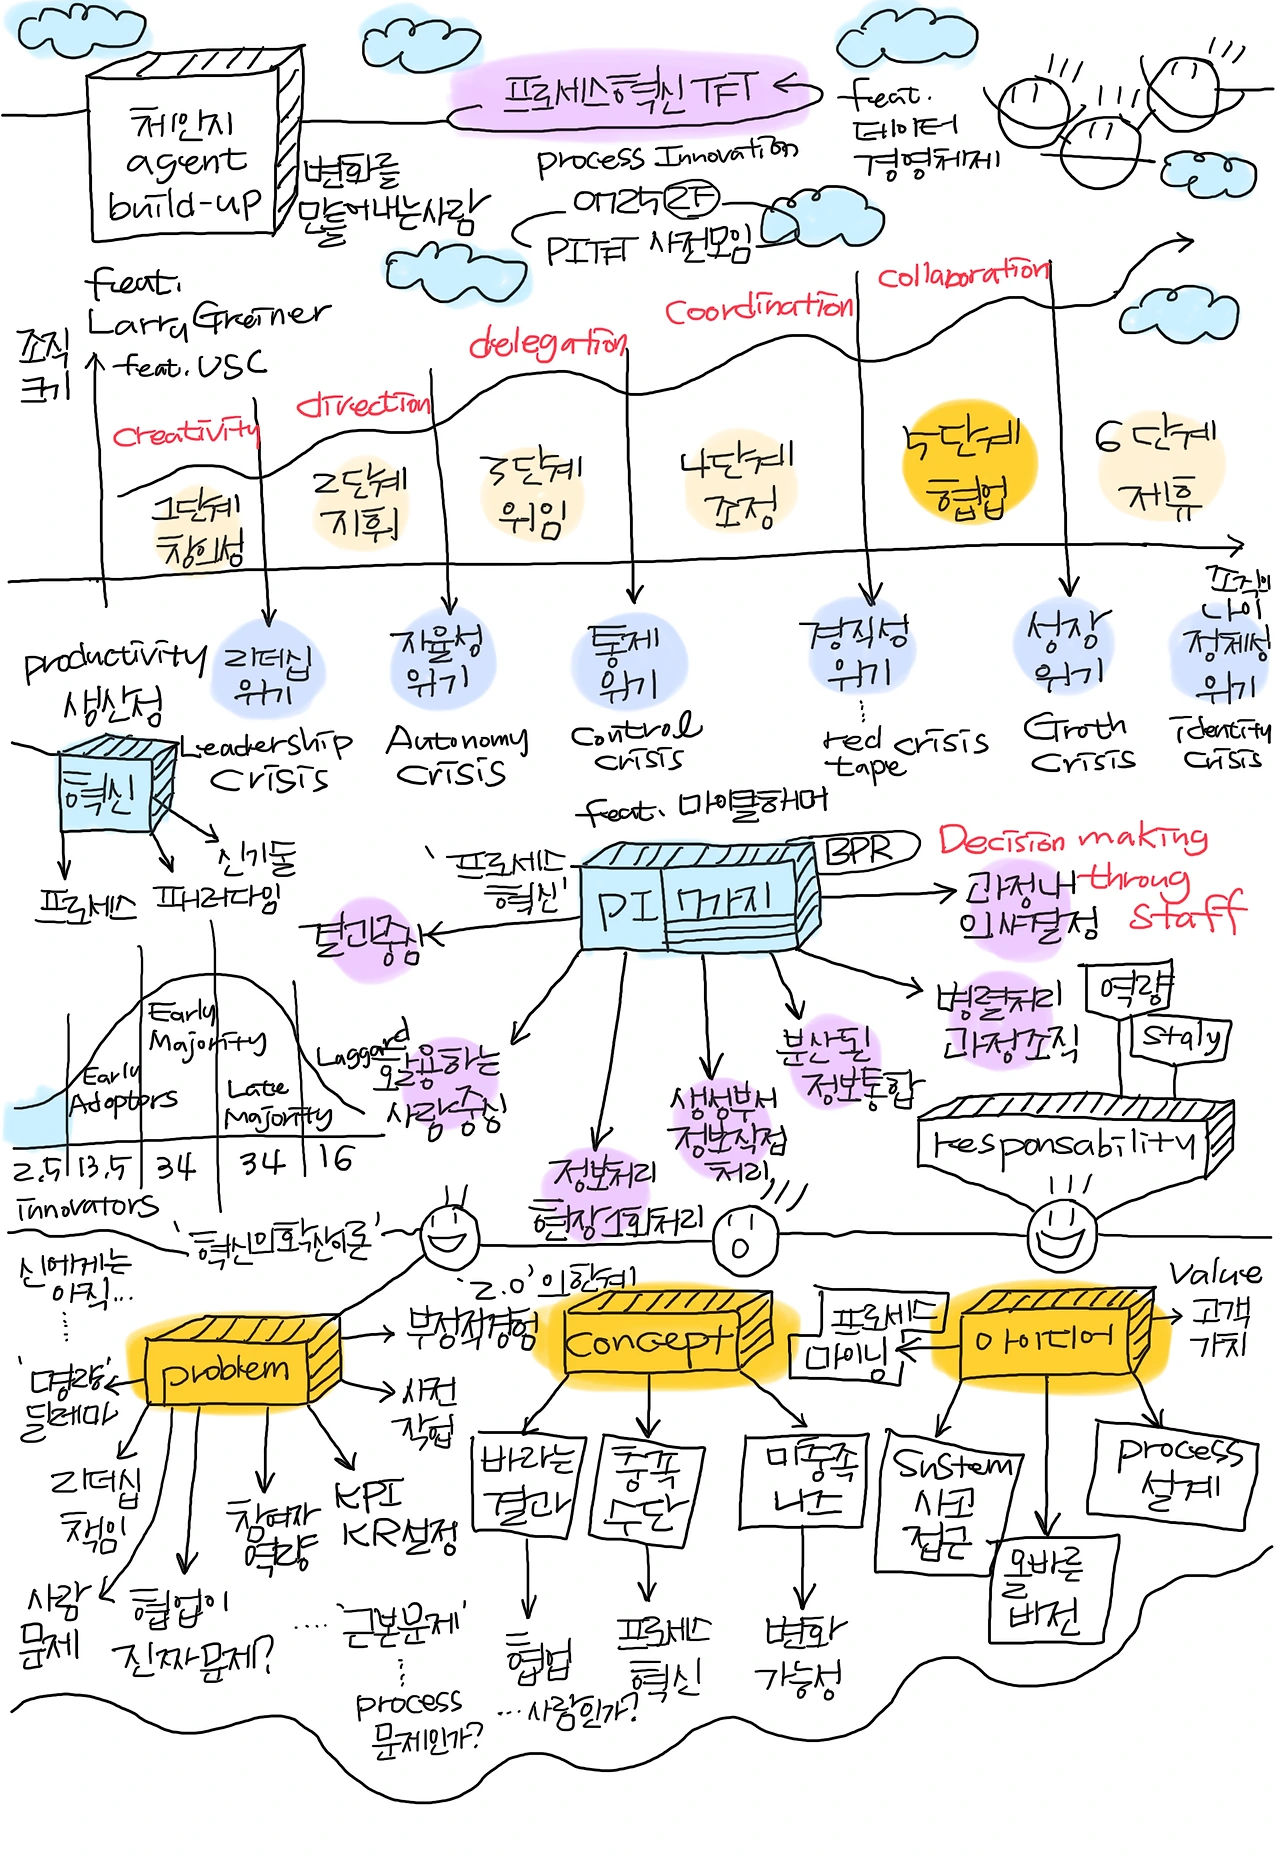 체인지
agent
build-up
변화를
만들어내는사람
프로세스혁신 TFT
process Innovation
2F
PITFT 사전모임
feat.
데이터
경영체제
feat.
Larry Greiner
feat. USC
조직
크기
creativity
direction
delegation
coordination
collaboration
1단계
창의성
2단계
지휘
3단계
위임
4단계
조정
5단계
협업
6단계
제휴
조직의
나이
리더십
위기
Leadership
crisis
자율성
위기
Autonomy
crisis
통제
위기
control
crisis
경직성
위기
red crisis
tape
성장
위기
Groth
crisis
정체성
위기
identity
crisis
productivity
생산성
혁신
프로세스
패러다임
신기술
feat. 마이클해머
'프로세스
혁신'
PI 7가지
BPR
Decision making
throug
staff
과정내
의사결정
결과중심
병렬처리
과정조직
분산된
정보통합
생성부서
정보직접
처리
정보처리
현장1회처리
활용하는
사람중심
Early
Adopters
Early
Majority
Late
Majority
Laggard
2.5 13.5 34 34 16
innovators
'혁신의확산이론'
역량
Staly
responsability
신에게는
아직...
'명량'
딜레마
problem
'2.0'의한계
부정적경험
사전
작업
리더십
책임
사람
문제
협업이
진짜문제?
참여자
역량
KPI
KR설정
'근본문제'
process
문제인가?
... 사람인가?
concept
바라는
결과
충족
수단
미충족
니즈
협업
프로세스
혁신
변화
가능성
프로세스
마이닝
아이디어
value
고객
가치
System
사고
접근
올바른
버전
process
설계